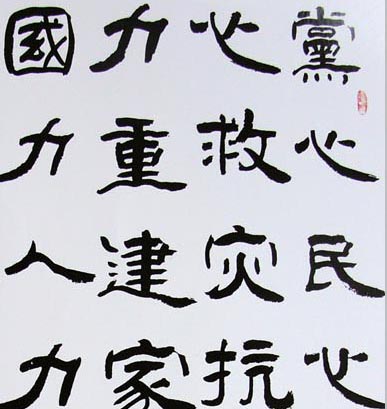 黨心民心
心救灾抗
力重建家
國力人力